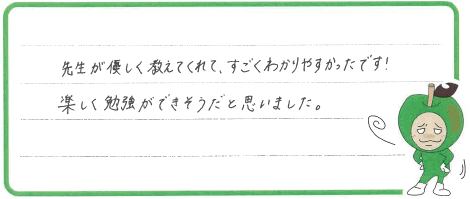 先生が優しく教えてくれて、すごくわかりやすかったです!
楽しく勉強ができそうだと思いました。